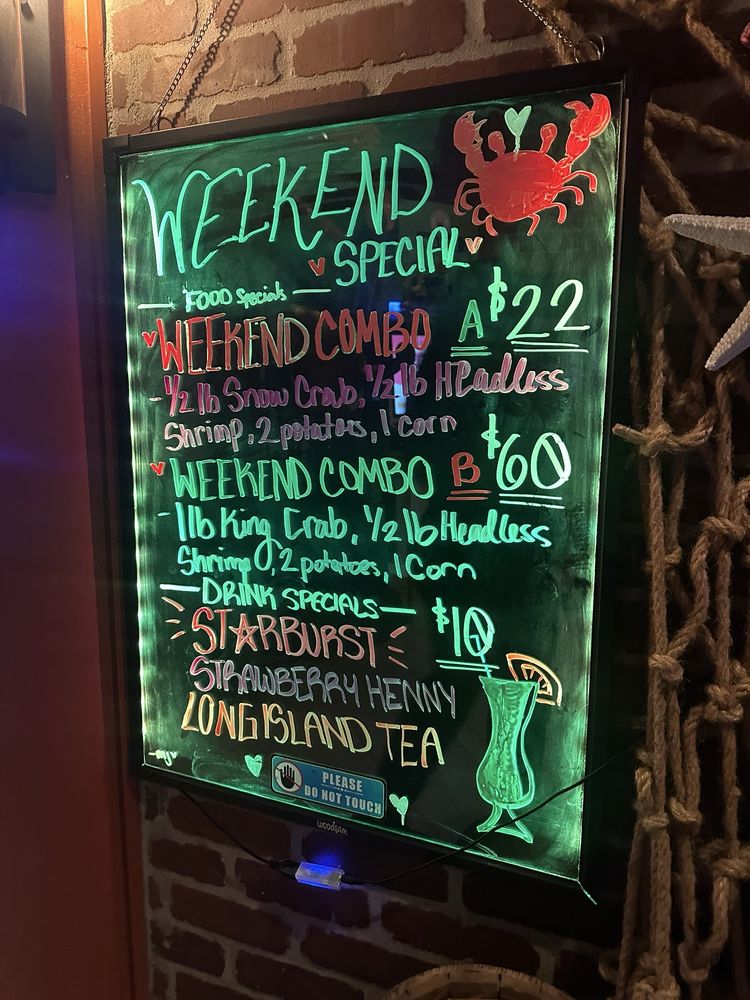 WEEKEND
SPECIAL
FOOD Specials
WEEKEND COMBO A $22
- 1/2 lb Snow Crab, 1/2 lb Headless
Shrimp, 2 potatoes, 1 corn
WEEKEND COMBO B $60
- 1 lb King Crab, 1/2 lb Headless
Shrimp, 2 potatoes, 1 Corn
DRINK SPECIALS
$10
STARBURST
STRAWBERRY HENNY
LONG ISLAND TEA
PLEASE
DO NOT TOUCH
woodsam